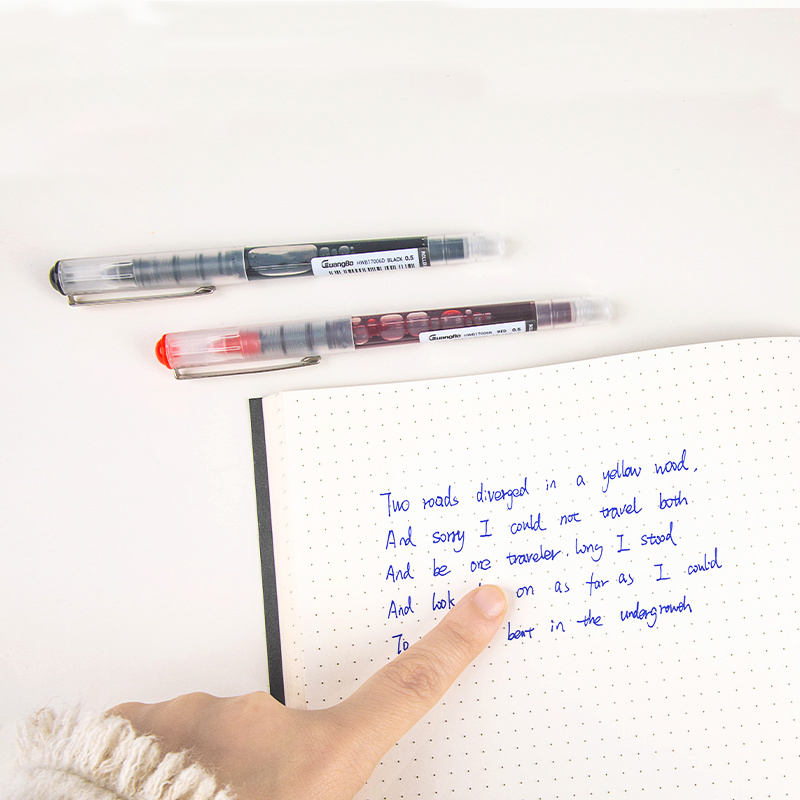 GuangBo HWB17006D BLACK 0.5
GuangBo HWB17006R RED 0.5
Two roads diverged in a yellow wood,
And sorry I could not travel both
And be one traveler, long I stood
And look on as far as I could
To bent in the undergrowth